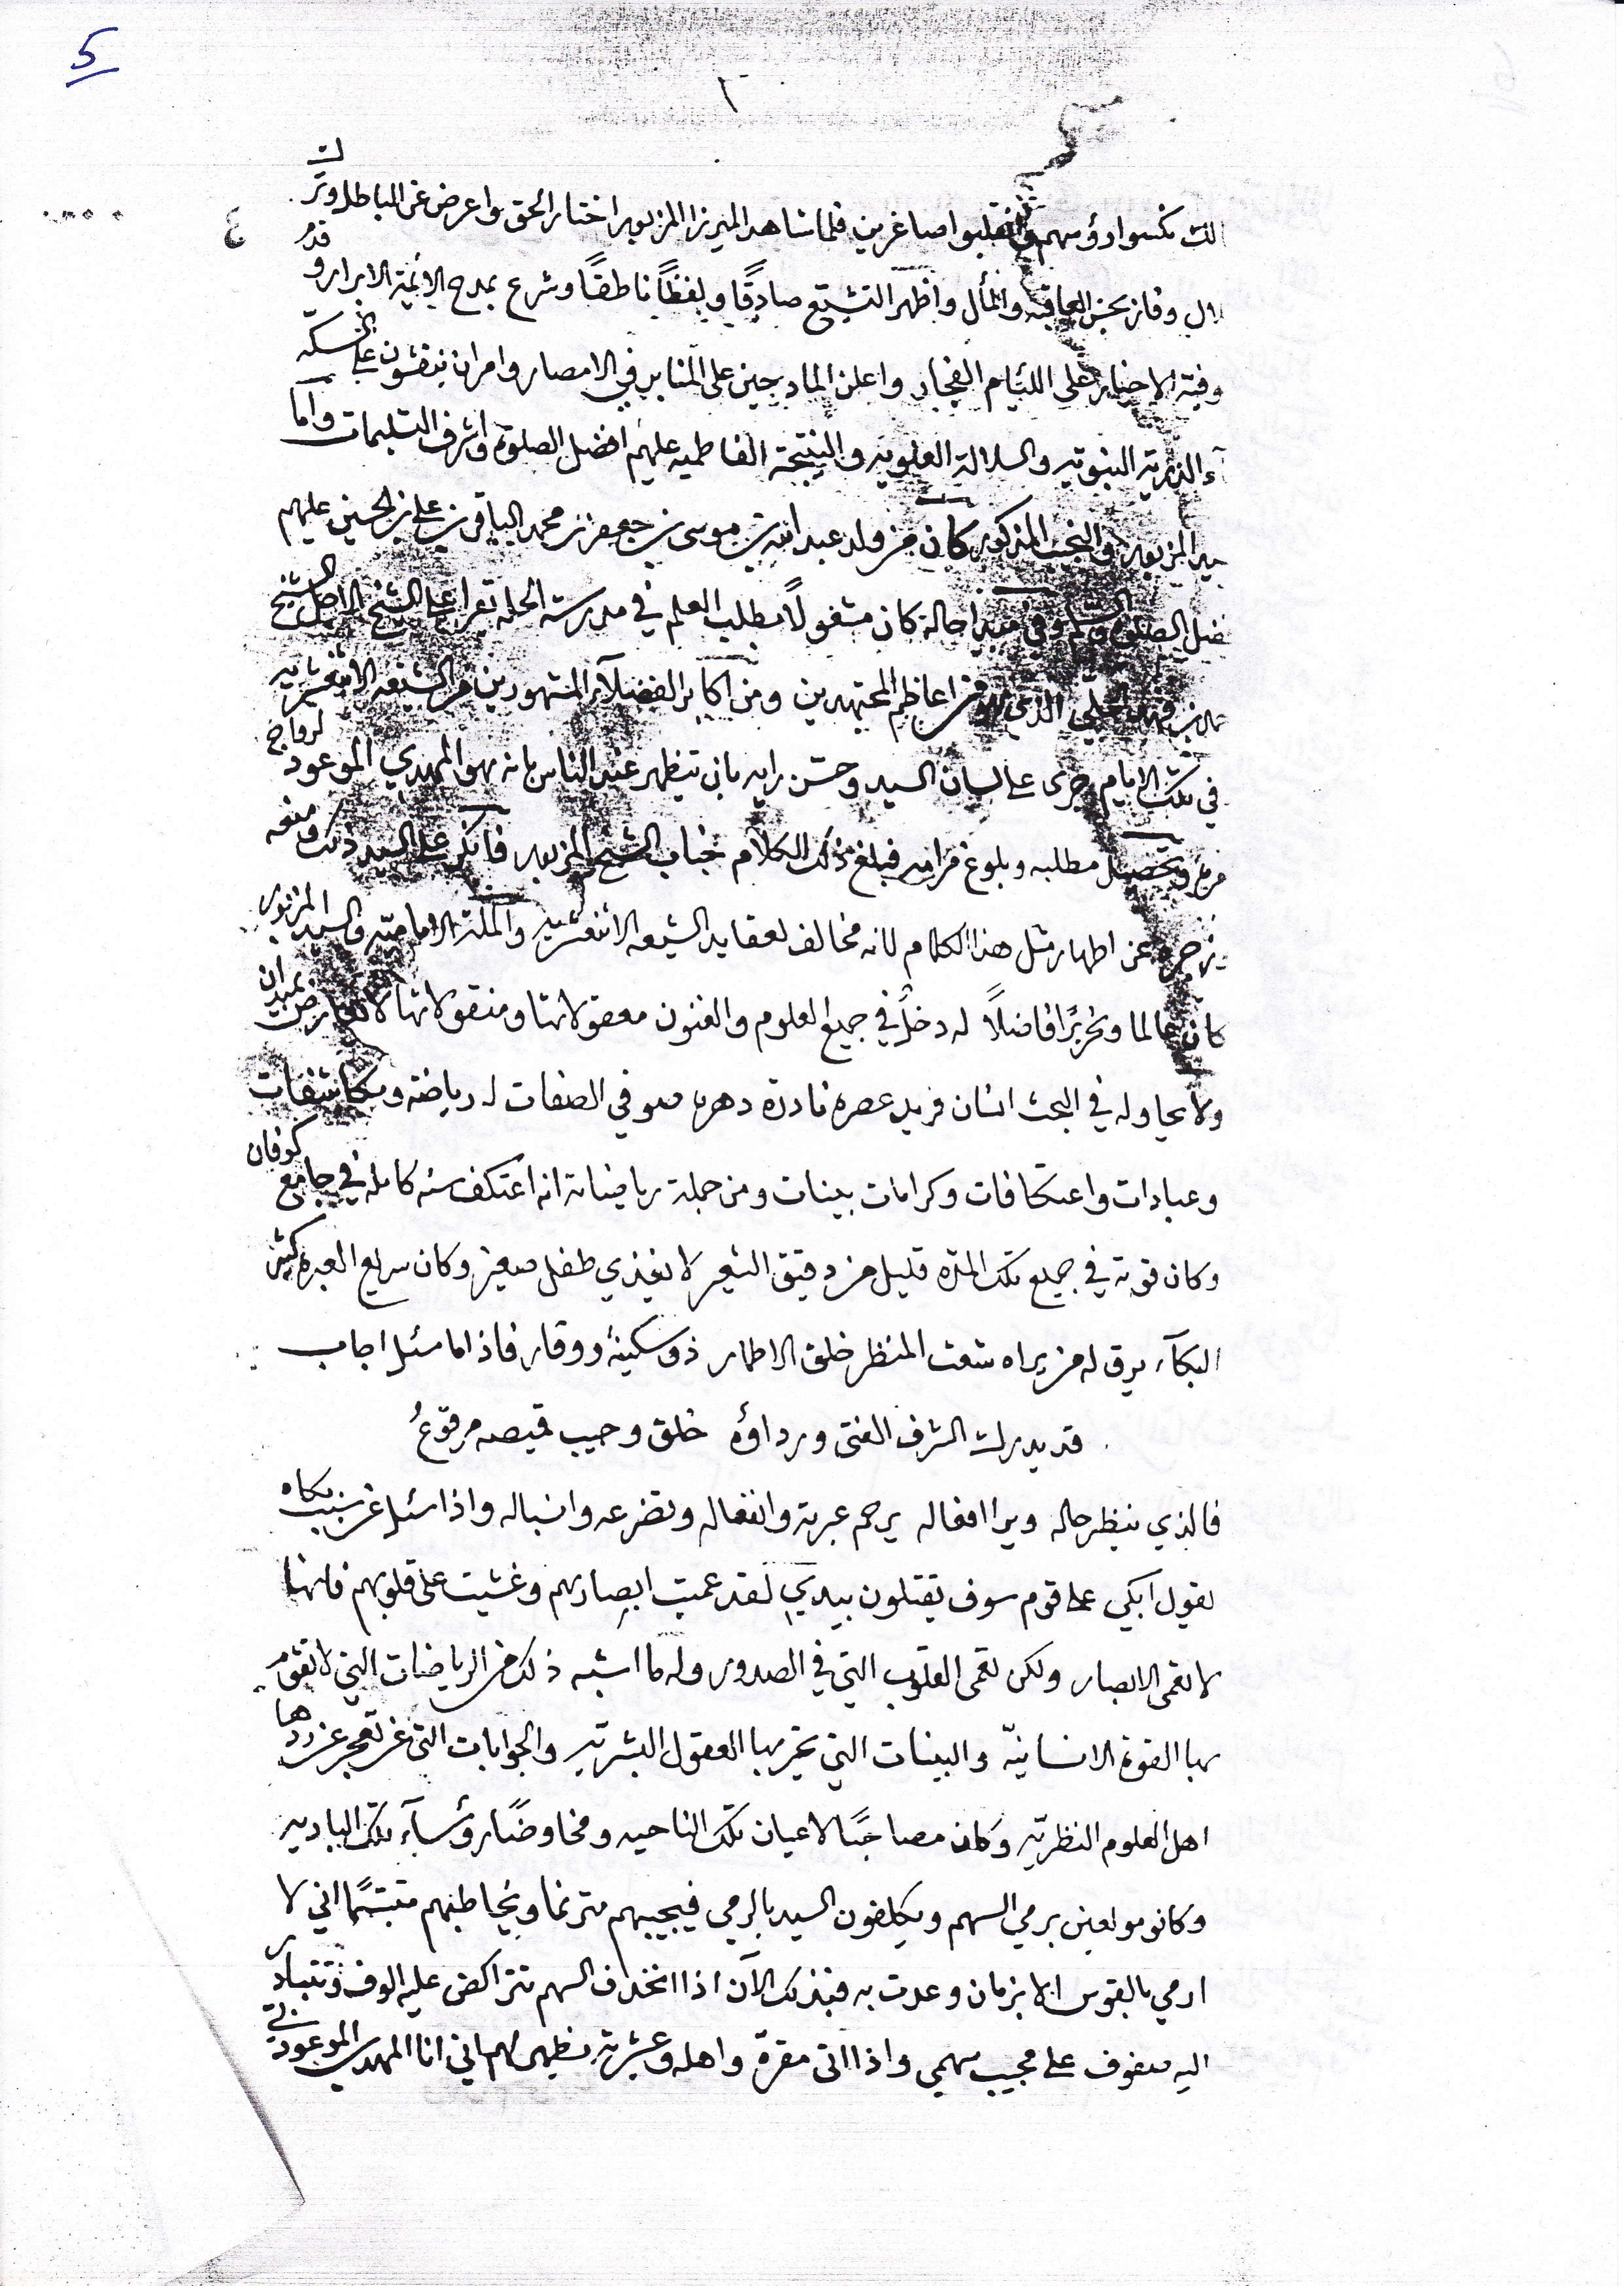 5
٤
نكسوا رؤسهم وانقلبوا صاغرين فلما شاهد الميرزا المزبور اختار الحق واعرض عن الباطل وترك
وفاز بحسن العاقبه والمأل واظهر التشيّع صادقًا وبفظًا ناطقًا وشرع بمدح الائمة الابرار وقدم
الاخيار على اللئيام الفجار واعلن المادحين على المنابر في الامصار وامر ان ينقشون على السكّه
الذرية النبوية والسلالة العلوية والنتيجة الفاطميه عليهم افضل الصلوة واشرف التسليمات واما
المزبور والنجيب المذكور كان من ولد عبد الله بن موسى بن جعفر بن محمد الباقر بن علي بن الحسين عليهم
الصلوة والسلم وفي مبدا حاله كان مشغولًا بطلب العلم في مدرسة الحله يقرا على الشيخ الاجل الشيخ
بن فهد الحلّي الذي هو من اعاظم المجتهدين ومن اكابر الفضلآء المشهورين من الشيعه الاثنعشريه
في تلك الايام جرى على لسان السيد وحسّن رايه بان يتظهر عند الناس بانه هو المهدي الموعود لرواج
وتحصيل مطلبه وبلوغ مرامه فبلغ ذلك الكلام جناب الشيخ المزبور فانكر على السيد ذلك ومنعه
زجره عن اظهار مثل هذا الكلام لانه مخالف لعقايد الشيعه الاثنعشريه والملة الاماميّه والسيد المزبور
كان عالما ونحريرًا فاضلًا له دخلٌ في جميع العلوم والفنون معقولاتها ومنقولاتها لا يعارض بميدان
ولا يحاوله في البحث انسان فريد عصره نادرة دهره صوفي الصفات له رياضة ومكاشفات
وعبادات واعتكافات وكرامات بينات ومن جملة رياضاته انه اعتكف سنه كامله في جامع كوفان
وكان قوته في جميع تلك المدّه قليل من دقيق الشعير لا يغذي طفل صغير وكان سريع العبره كثير
البكآء يرق له من يراه شعث المنظر خلق الاطمار ذو سكينة ووقار فاذا ما سئل اجاب
قد يدرك الشرف الفتى ورداؤه خلق وجيب قميصه مرقوعُ
فالذي ينظر حاله ويرا افعاله يرحم عبرته وانفعاله وتضرعه وانسباله واذا سئل عن سبب بكاه
يقول ابكي على قوم سوف يقتلون بيدي لقد عميت ابصارهم وغشيت على قلوبهم فانها
لا تعمى الابصار ولكن تعمى القلوب التي في الصدور وله ما اشبه ذلك من الرياضات التي لا تقوم
بها القوة الانسانيّة والبينات التي تحير بها العقول البشريّه والجوابات التي تعجز عن ردها
اهل العلوم النظريّه وكان مصاحبًا لاعيان تلك الناحيه ومخاوضًا رؤسآء تلك الباديه
وكانو مولعين برمي السهم ويكلفون السيد بالرمي فيجيبهم مترنما ويخاطبهم متبسّمًا اني لا
ارمي بالقوس الا بزمان وعدت به فبذلك الآن اذا انخذف السهم تتراكض عليه الوف وتتبادر
اليه صفوف على مجيب سهمي واذا اتى مقرة واهله وعشيرته يظهر لهم اني انا المهدي الموعود